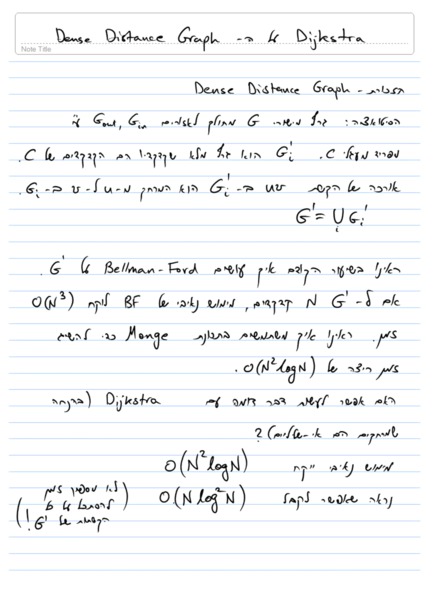 Dijkstra על ה- Dense Distance Graph
Note Title
תזכורת - Dense Distance Graph
הסיטואציה: גרף מישורי G מחולק לאזורים Gin, Gout ע"י
מפריד מעגלי C. G'i הוא גרף מלא שקדקדיו הם הקדקדים של C.
אורכה של הקשת uv ב- G'i הוא המרחק מ-u ל-v ב-Gi.
G' = ⋃i G'i
ראינו בשיעור הקודם איך עושים Bellman-Ford על G'.
אם ל- G' N קדקדים, מימוש נאיבי של BF לוקח O(N³)
זמן. ראינו איך משתמשים בתכונת Monge כדי להשיג
זמן ריצה של O(N²logN).
האם אפשר לעשות דבר דומה עם Dijkstra (בהנחה
שהמרחקים הם אי-שליליים)?
מימוש נאיבי ייקח O(N²logN)
נראה שאפשר לקבל O(N log²N) (לא מספיק זמן
להסתכל על כל
הקשתות של G'!)